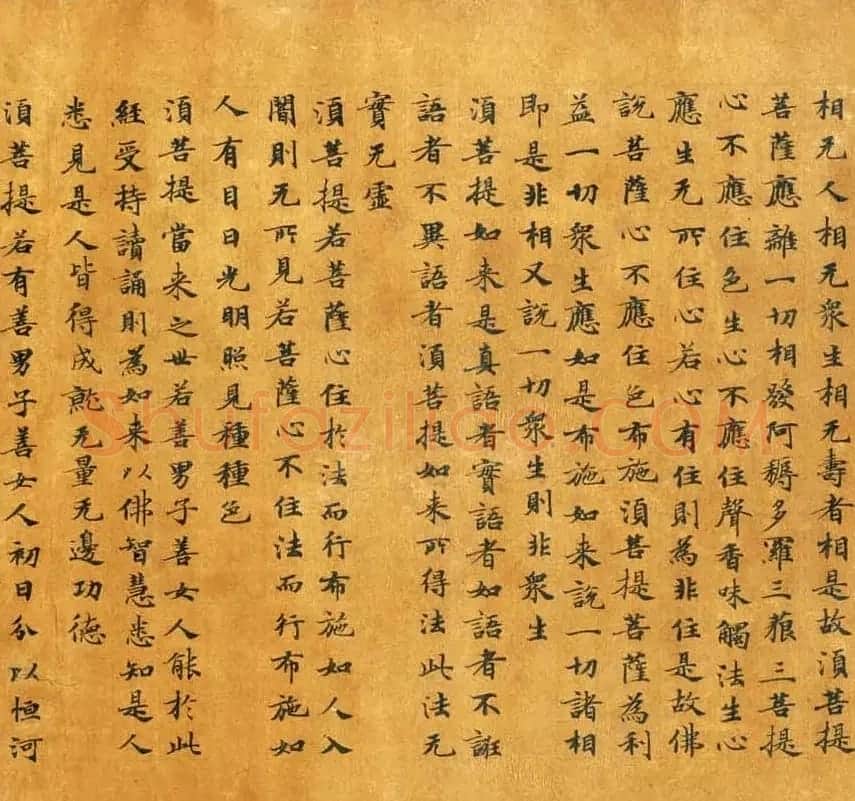 相无人相无衆生相无壽者相是故湏菩提
菩薩應離一切相發阿耨多羅三藐三菩提
心不應住色生心不應住聲香味觸法生心
應生无所住心若心有住則為非住是故佛
說菩薩心不應住色布施湏菩提菩薩為利
益一切衆生應如是布施如来說一切諸相
即是非相又說一切衆生則非衆生
湏菩提如来是真語者實語者如語者不誑
語者不異語者湏菩提如来所得法此法无
實无虛
湏菩提若菩薩心住於法而行布施如人入
闇則无所見若菩薩心不住法而行布施如
人有目日光明照見種種色
湏菩提當来之世若善男子善女人能於此
經受持讀誦則為如来以佛智慧悉知是人
悉見是人皆得成就无量无邊功德
湏菩提若有善男子善女人初日分以恒河
Shufaziliao.COM